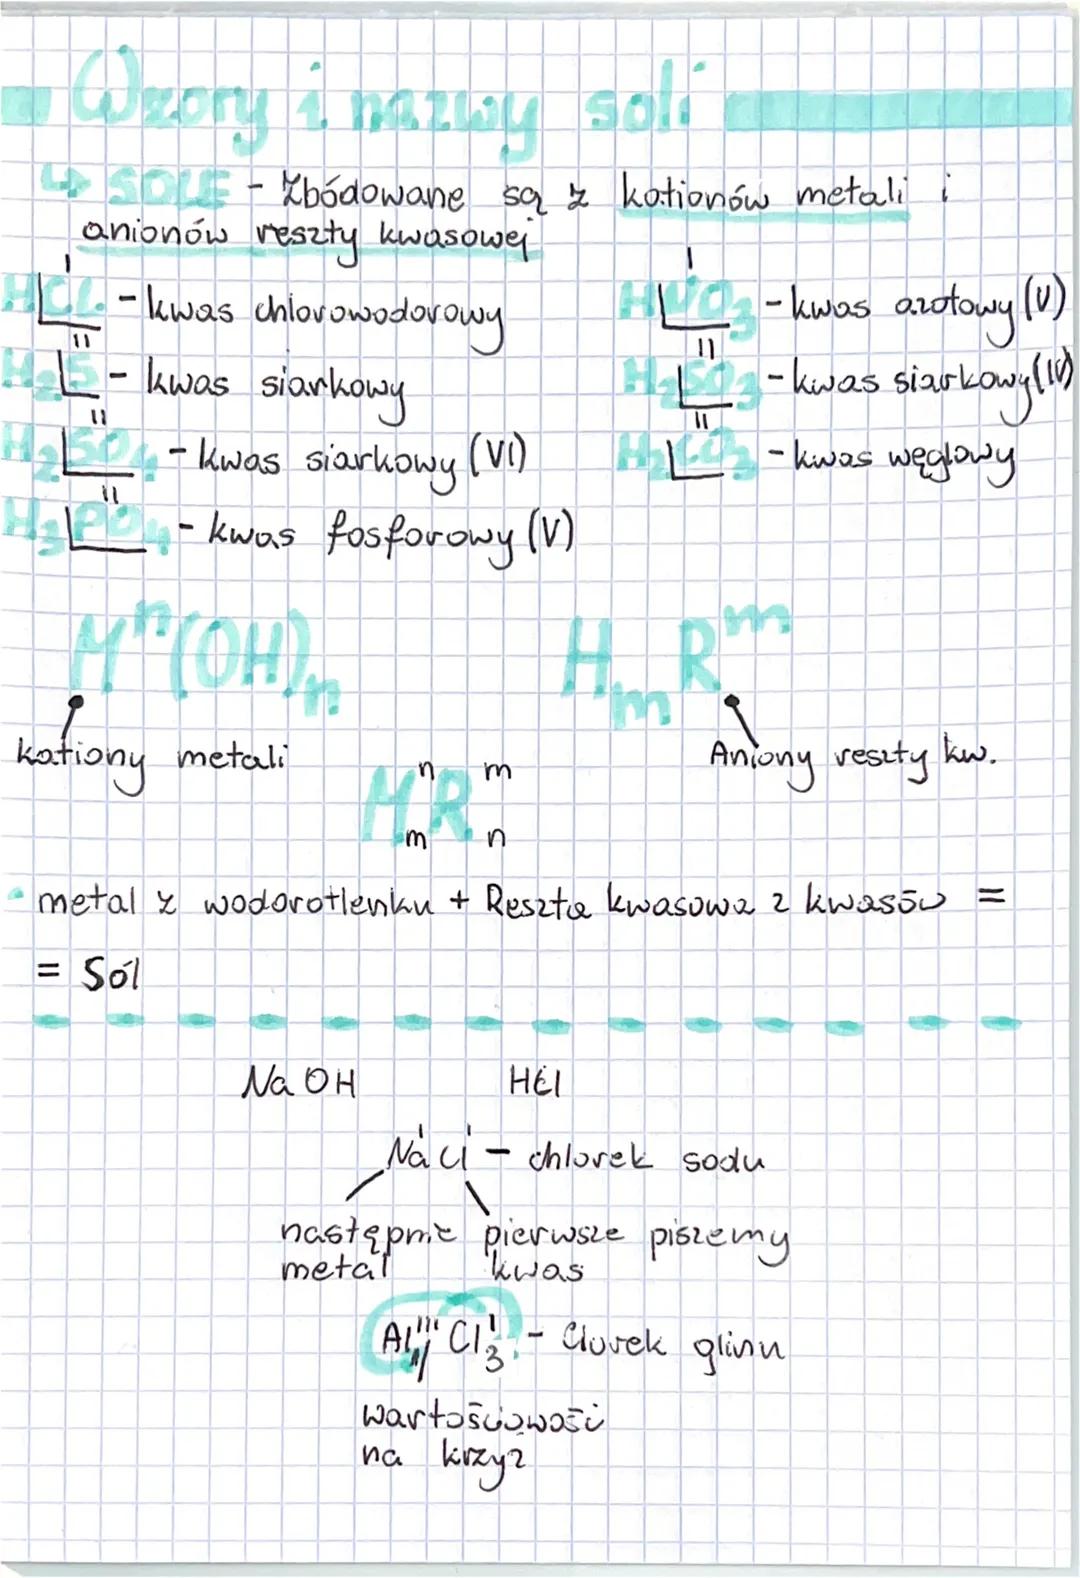 Wzory i nazwy soli
↳ SOLE - Zbódowane są z kationów metali i
anionów reszty kwasowej
HCl - kwas chlorowodorowy
H₂S - kwas siarkowy
H₂SO₄ - kwas siarkowy (VI)
H₃PO₄ - kwas fosforowy (V)
HNO₃ - kwas azotowy (V)
H₂SO₃ - kwas siarkowy (IV)
H₂CO₃ - kwas węglowy
Mⁿ(OH)ₙ
HₘRᵐ
kationy metali
Aniony reszty kw.
MₘⁿRₙᵐ
• metal z wodorotlenku + Reszta kwasowa z kwasów =
= Sól
NaOH HCl
NaᴵClᴵ - chlorek sodu
następnie metal
pierwsze piszemy kwas
AlᴵᴵᴵCl₃ᴵ - Clorek glinu
wartościowości
na krzyż